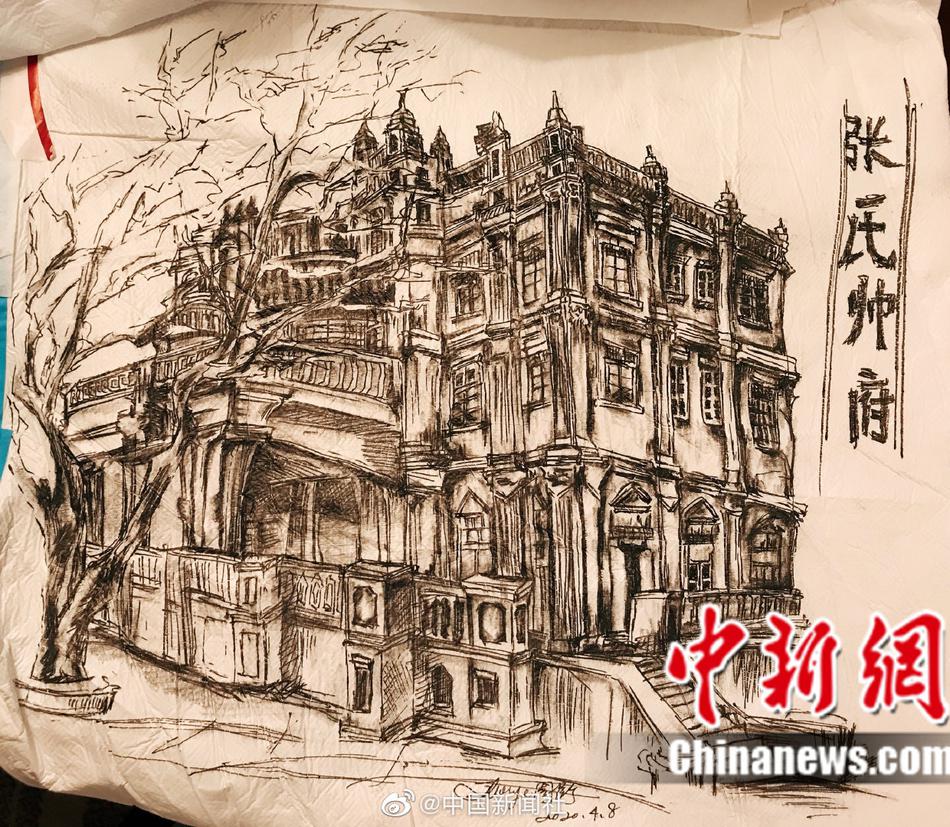 张氏帅府
中新網
Chinanews.com
@中国新闻社
2020.4.8